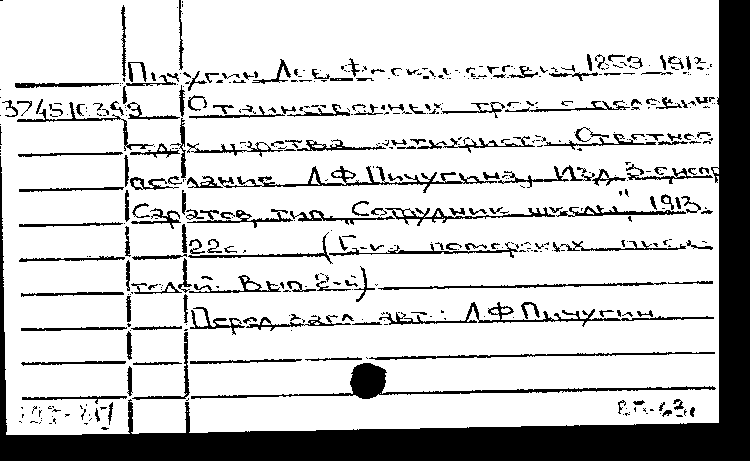 Пичугин Лев Феоктистович, 1859-1913.
3745/0399 О таинственных трех с половино
годах царства антихриста. Ответное
послание Л.Ф.Пичугина, Изд. 3-е испр
Саратов, тип. "Сотрудник школы", 1913.
22с. (Б-ка поморских писа-
телей. Вып. 2-й).
Перед загл. авт.: Л.Ф.Пичугин.
ВП-63г